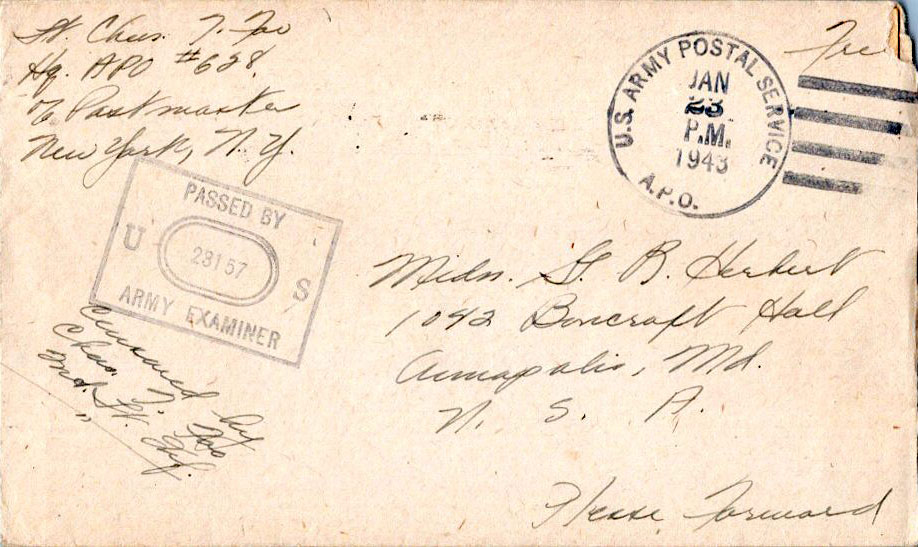 Lt. Chas. T. Foo
Hq. APO #628.
% Postmaster
New York, N.Y.
Free
U.S. ARMY POSTAL SERVICE
JAN
23
P.M.
1943
A.P.O.
PASSED BY
U 28157 S
ARMY EXAMINER
Censored by
Chas. T. Foo
2nd. Lt. Inf.
Midn. G. B. Herbert
1042 Bancroft Hall
Annapolis, Md.
U. S. A.
Please Forward